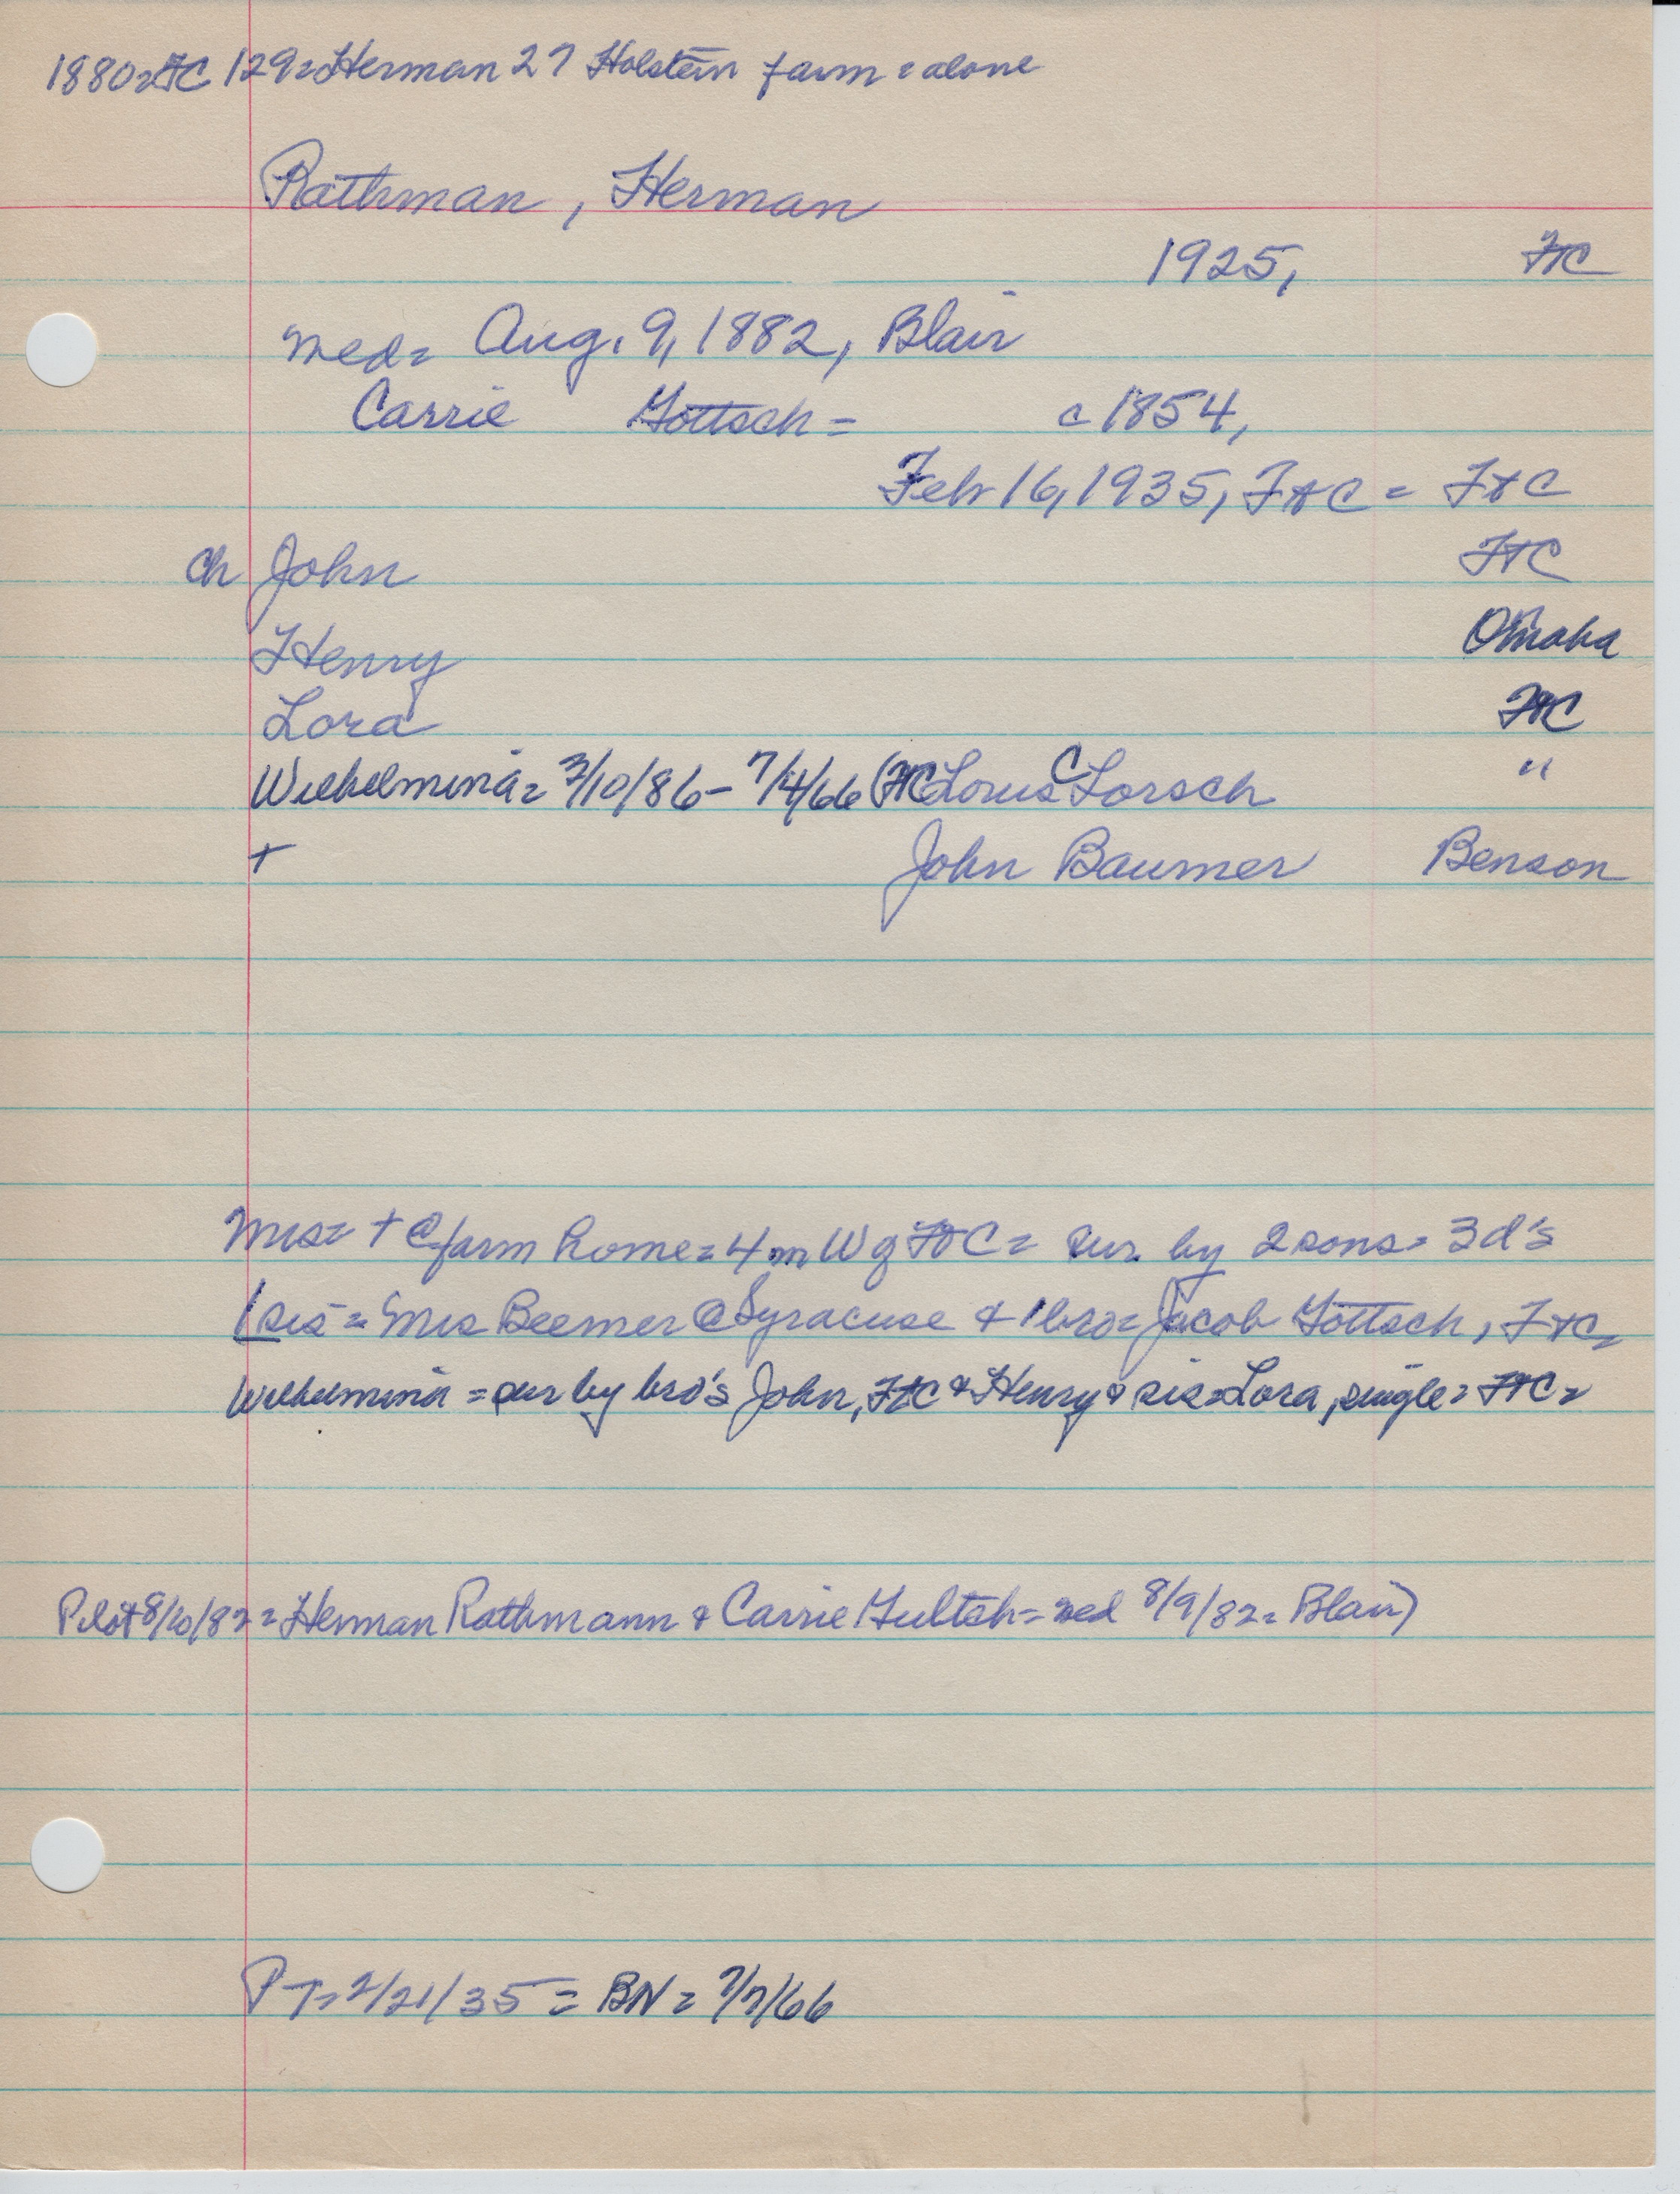 1880=FC 129=Herman 27 Holstein farm=alone
Rathman, Herman
1925, FtC
Med= Aug. 9, 1882, Blair
Carrie Göttsch= c 1854,
Feb 16, 1935, FtC = FtC
Ch John FtC
Henry Omaha
Lora FtC
Wilhelmina= 3/10/86- 7/4/66 (FtC Louis C Lorsch "
+ John Baumer Benson
Mrs= + @ farm home=4 m W of FtC= sur. by 2 sons= 3 d's
1 sis= Mrs Beemer @ Syracuse & 1 bro= Jacob Göttsch, FtC=
Wilhelmina = sur by bro's John, FtC & Henry & sis=Lora, single= FtC=
Pilot 8/10/82= Herman Rathmann & Carrie Gultsh= Med 8/9/82= Blair)
PT= 2/21/35 = BN= 7/7/66